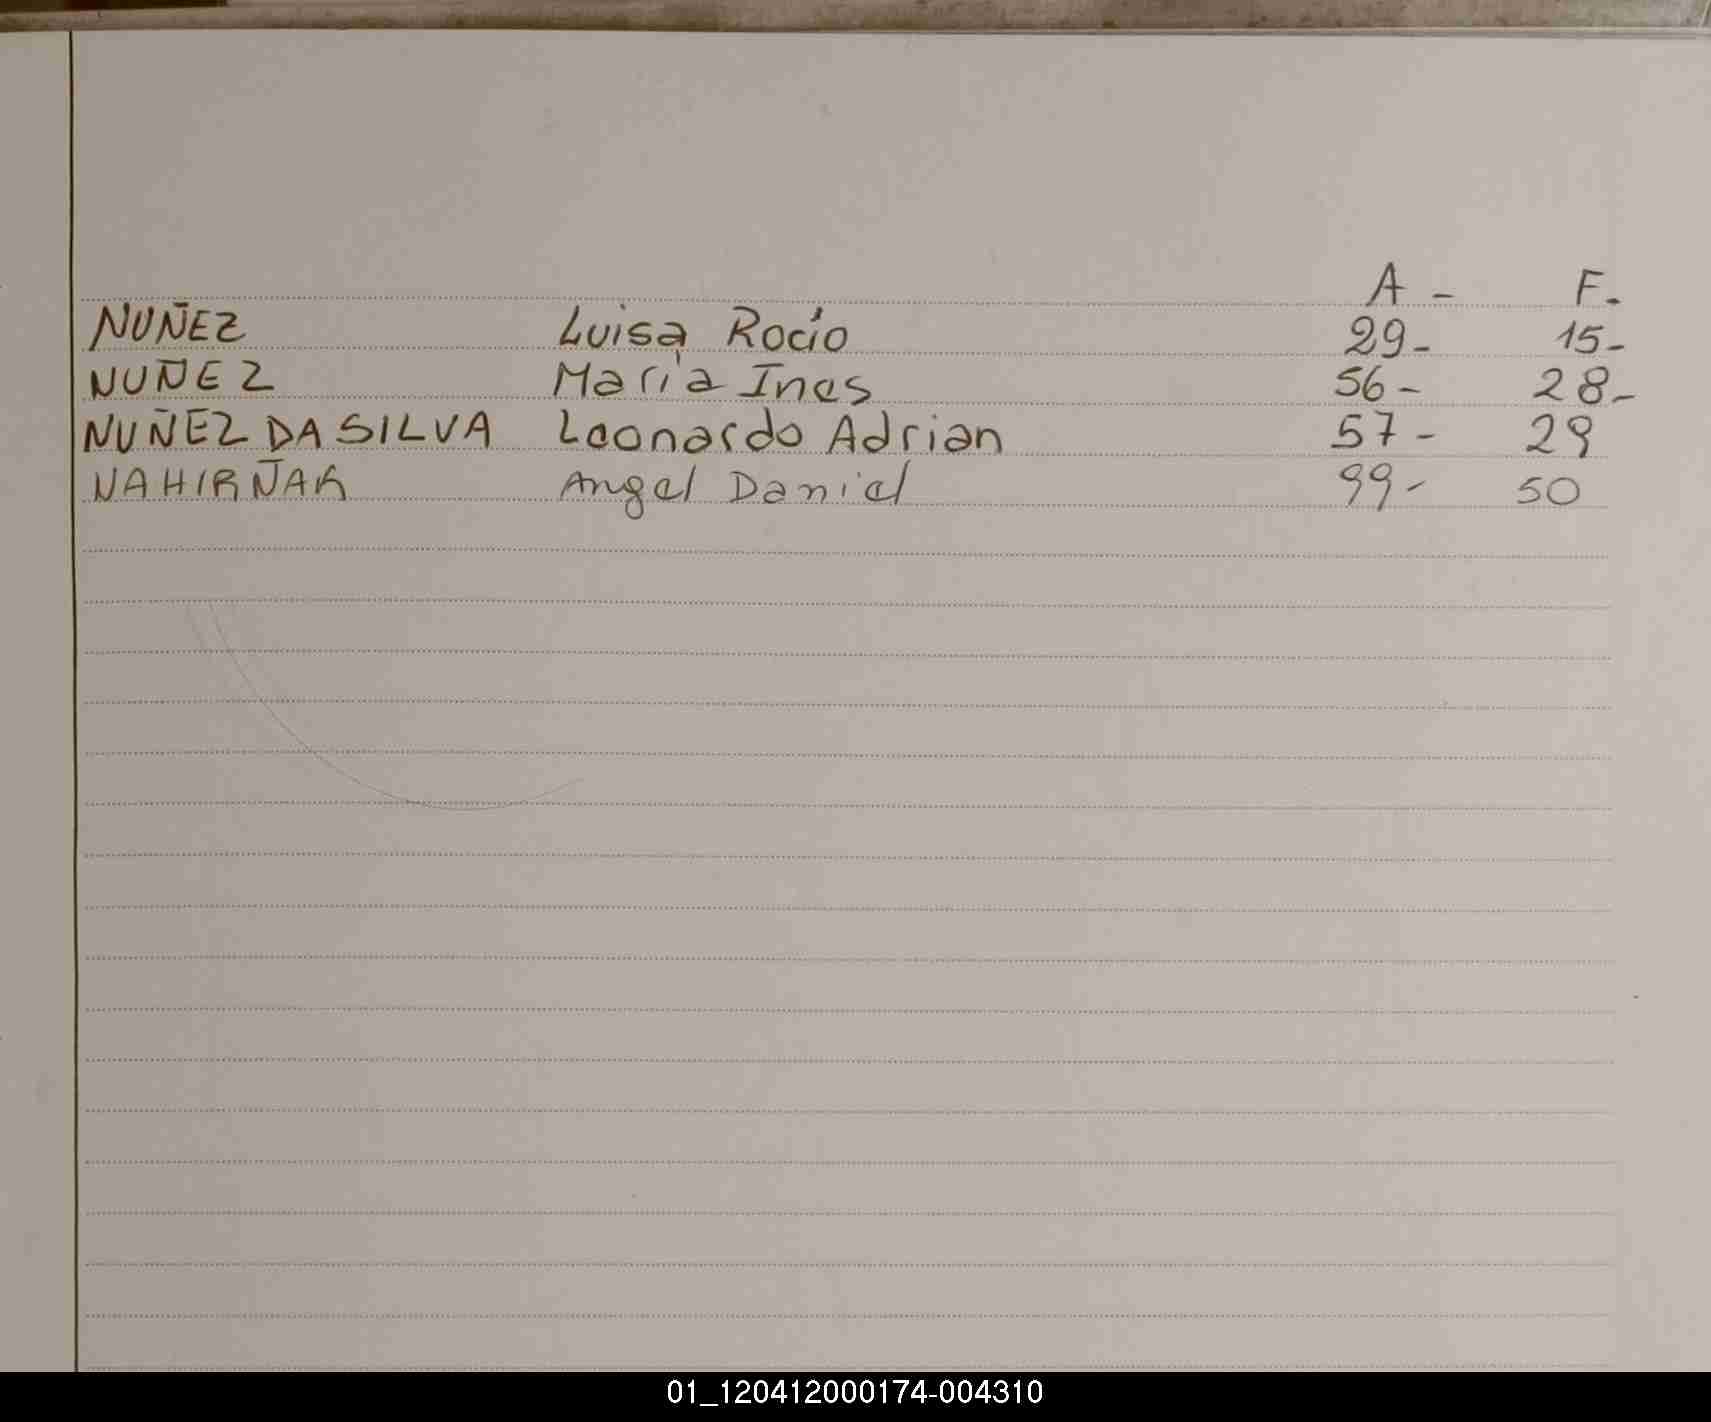 A - F.
NUÑEZ Luisa Rocío 29- 15-
NUÑEZ María Ines 56- 28-
NUÑEZ DA SILVA Leonardo Adrian 57- 29
NAHIRÑAK Angel Daniel 99- 50
01_120412000174-004310